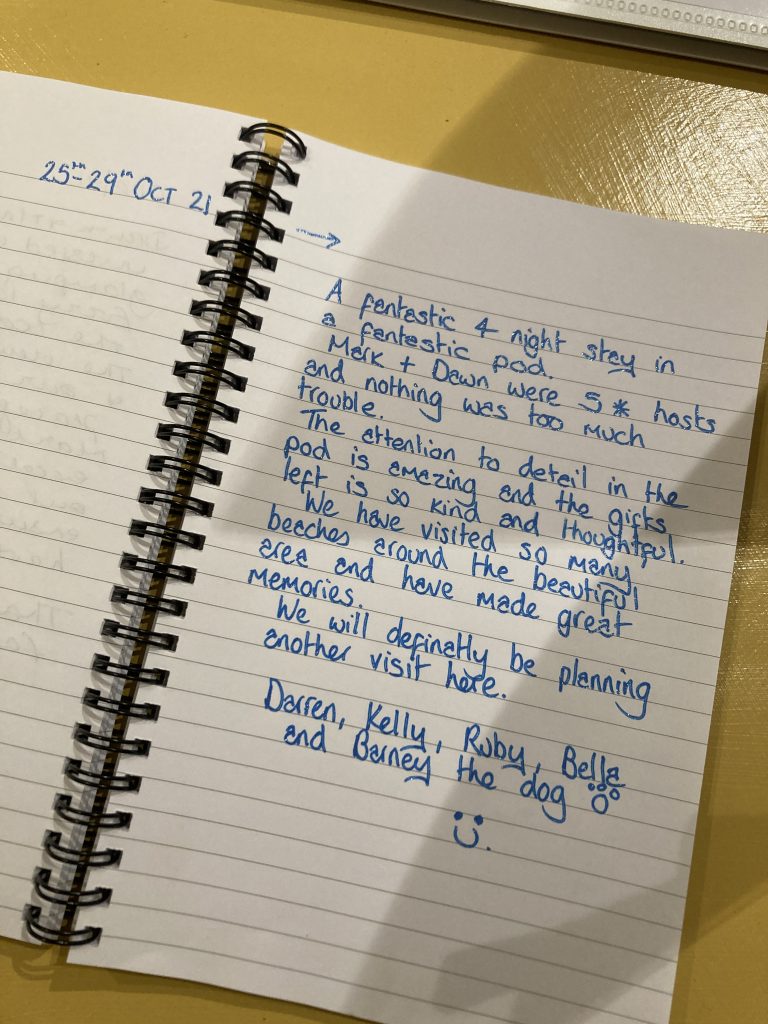 25th-29th OCT 21
→
A fantastic 4 night stay in
a fantastic pod.
Mark + Dawn were 5* hosts
and nothing was too much
trouble.
The attention to detail in the
pod is amazing and the gifts
left is so kind and thoughtful.
We have visited so many
beaches around the beautiful
area and have made great
memories.
We will definatly be planning
another visit here.
Darren, Kelly, Ruby, Bella
and Barney the dog